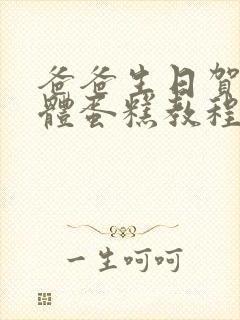 爸爸生日賀
體蛋糕教程
一生呵呵